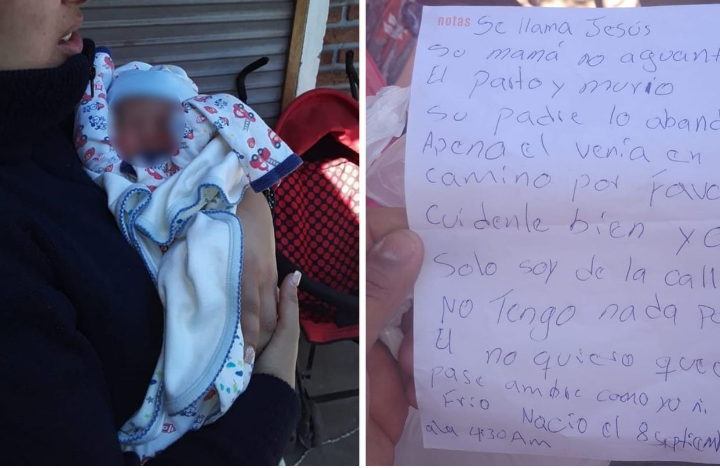 notas
Se llama Jesús
su mamá no aguant
El parto y murio
su padre lo aband
Apena el venía en
camino por favo
cuidenle bien yo
Solo soy de la call
NO Tengo nada p
El no quiero que
pase ambre como yo ni
Frio Nacio el 8 septiem
a la 4:30 AM